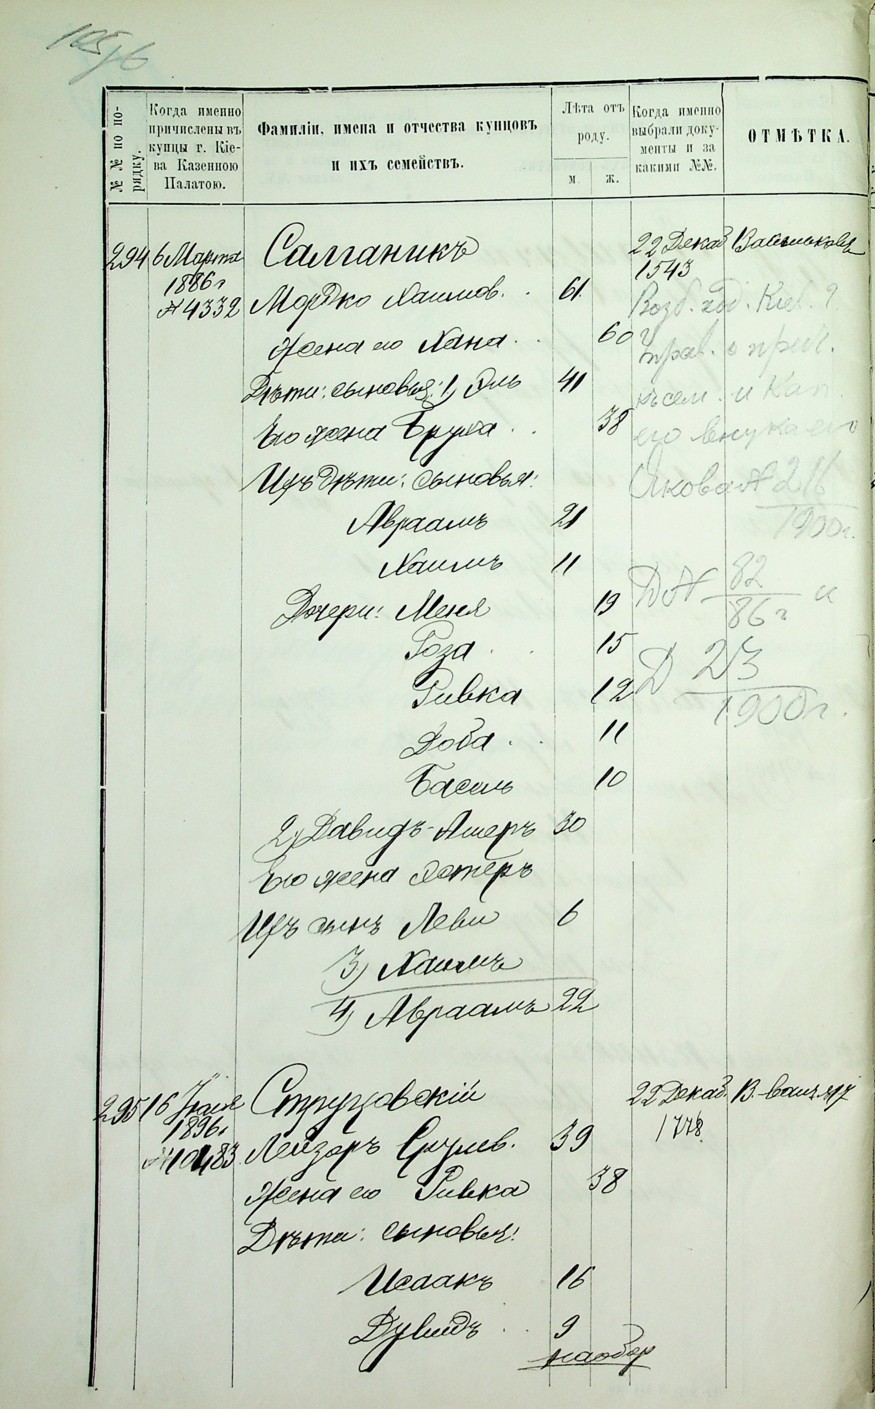 № № по по-
рядку.
Когда именно
причислены въ
купцы г. Кіе-
ва Казенною
Палатою.
Фамиліи, имена и отчества купцовъ
и ихъ семействъ.
Лѣта отъ
роду.
м
ж.
Когда именно
выбрали доку-
менты и за
какими №№.
ОТМѢТКА.
294 6 Марта Салганикъ 22 Декаб Васильковск
1886 г 1543
№ 4332 Мордко Хаимов. 61
Жена его Хана 60
Дѣти: сыновья: 1) Эль 41
Его жена Бруха 38
Ихъ дѣти: сыновья:
Авраамъ 21
Хаимъ 11
Дочери: Меня 19
Роза 15
Ривка 12
Доба 11
Басель 10
2) Давидъ-Ашеръ 30
Его жена Эстеръ
Ихъ сынъ Леви 6
3) Хаимъ
4) Авраамъ 22
Возб. ход. Кіев.
прав. о прич.
къ сем. и кап.
его внука его
Якова № 216
1900 г.
Д № 82 и
86 г
Д 213
1900 г.
295 16 Струцовскій 22 Декаб.
1896 г 1778
№ 10483 Лейзоръ Срулев. 39
Жена его Ривка 38
Дѣти: сыновья:
Исаакъ 16
Дувидъ 9
на обор